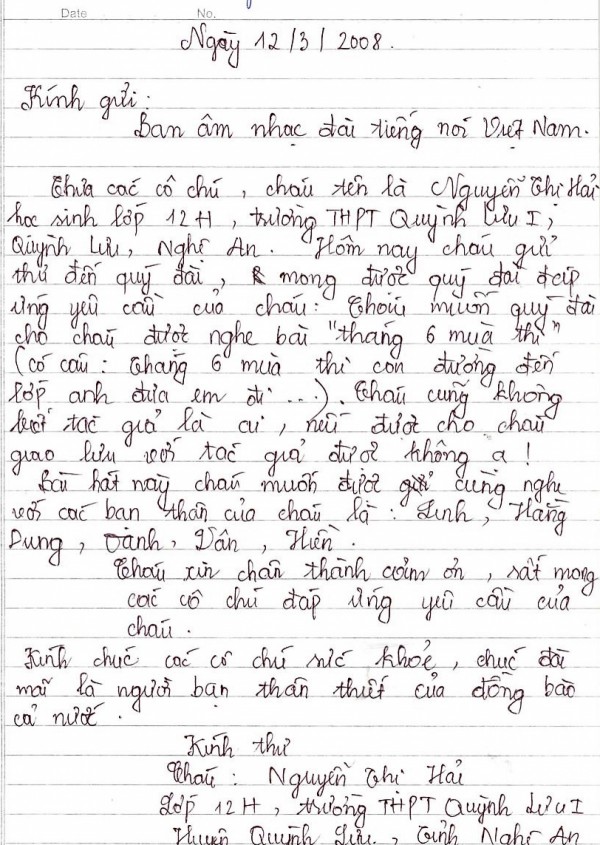 Date No.
Ngày 12/3/2008.
Kính gửi:
Ban âm nhạc đài tiếng nói Việt Nam.
Thưa các cô chú, cháu tên là Nguyễn Thị Hải
học sinh lớp 12H, trường THPT Quỳnh Lưu I,
Quỳnh Lưu, Nghệ An. Hôm nay cháu gửi
thư đến quý đài, mong được quý đài đáp
ứng yêu cầu của cháu: Cháu muốn quý đài
cho cháu được nghe bài "tháng 6 mùa thi"
(có câu: Tháng 6 mùa thi con đường đến
lớp anh đưa em đi ...). Cháu cũng không
biết tác giả là ai, nếu được cho cháu
giao lưu với tác giả được không ạ!
Bài hát này cháu muốn được gửi cùng nghe
với các bạn thân của cháu là: Linh, Hằng
Dung, Oanh, Vân, Hiền.
Cháu xin chân thành cảm ơn, rất mong
các cô chú đáp ứng yêu cầu của
cháu.
Kính chúc các cô chú sức khoẻ, chúc đài
mãi là người bạn thân thiết của đồng bào
cả nước.
Kính thư
Cháu: Nguyễn Thị Hải
Lớp 12H, trường THPT Quỳnh Lưu I
Huyện Quỳnh Lưu, Tỉnh Nghệ An